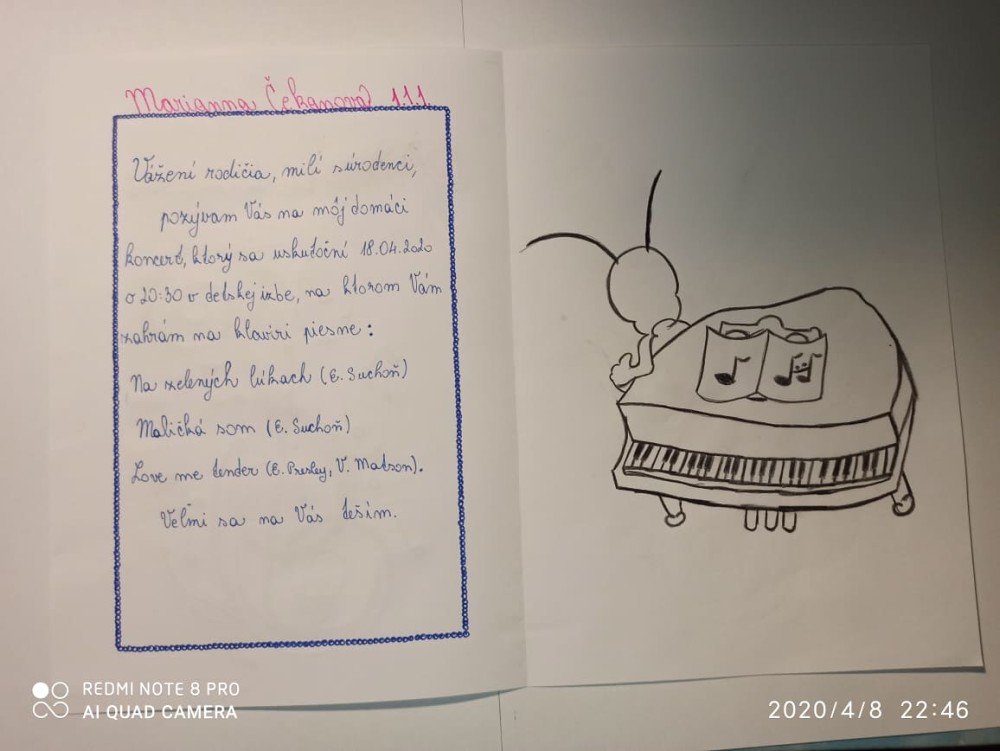 Marianna Čekanová 1.1.1
Vážení rodičia, milí súrodenci,
pozývam Vás na môj domáci
koncert, ktorý sa uskutoční 18.04.2020
o 20:30 v detskej izbe, na ktorom Vám
zahrám na klavíri piesne:
Na zelených lúkach (E. Suchoň)
Maličká som (E. Suchoň)
Love me tender (E. Presley, V. Matson).
Veľmi sa na Vás teším.
REDMI NOTE 8 PRO
AI QUAD CAMERA
2020/4/8 22:46